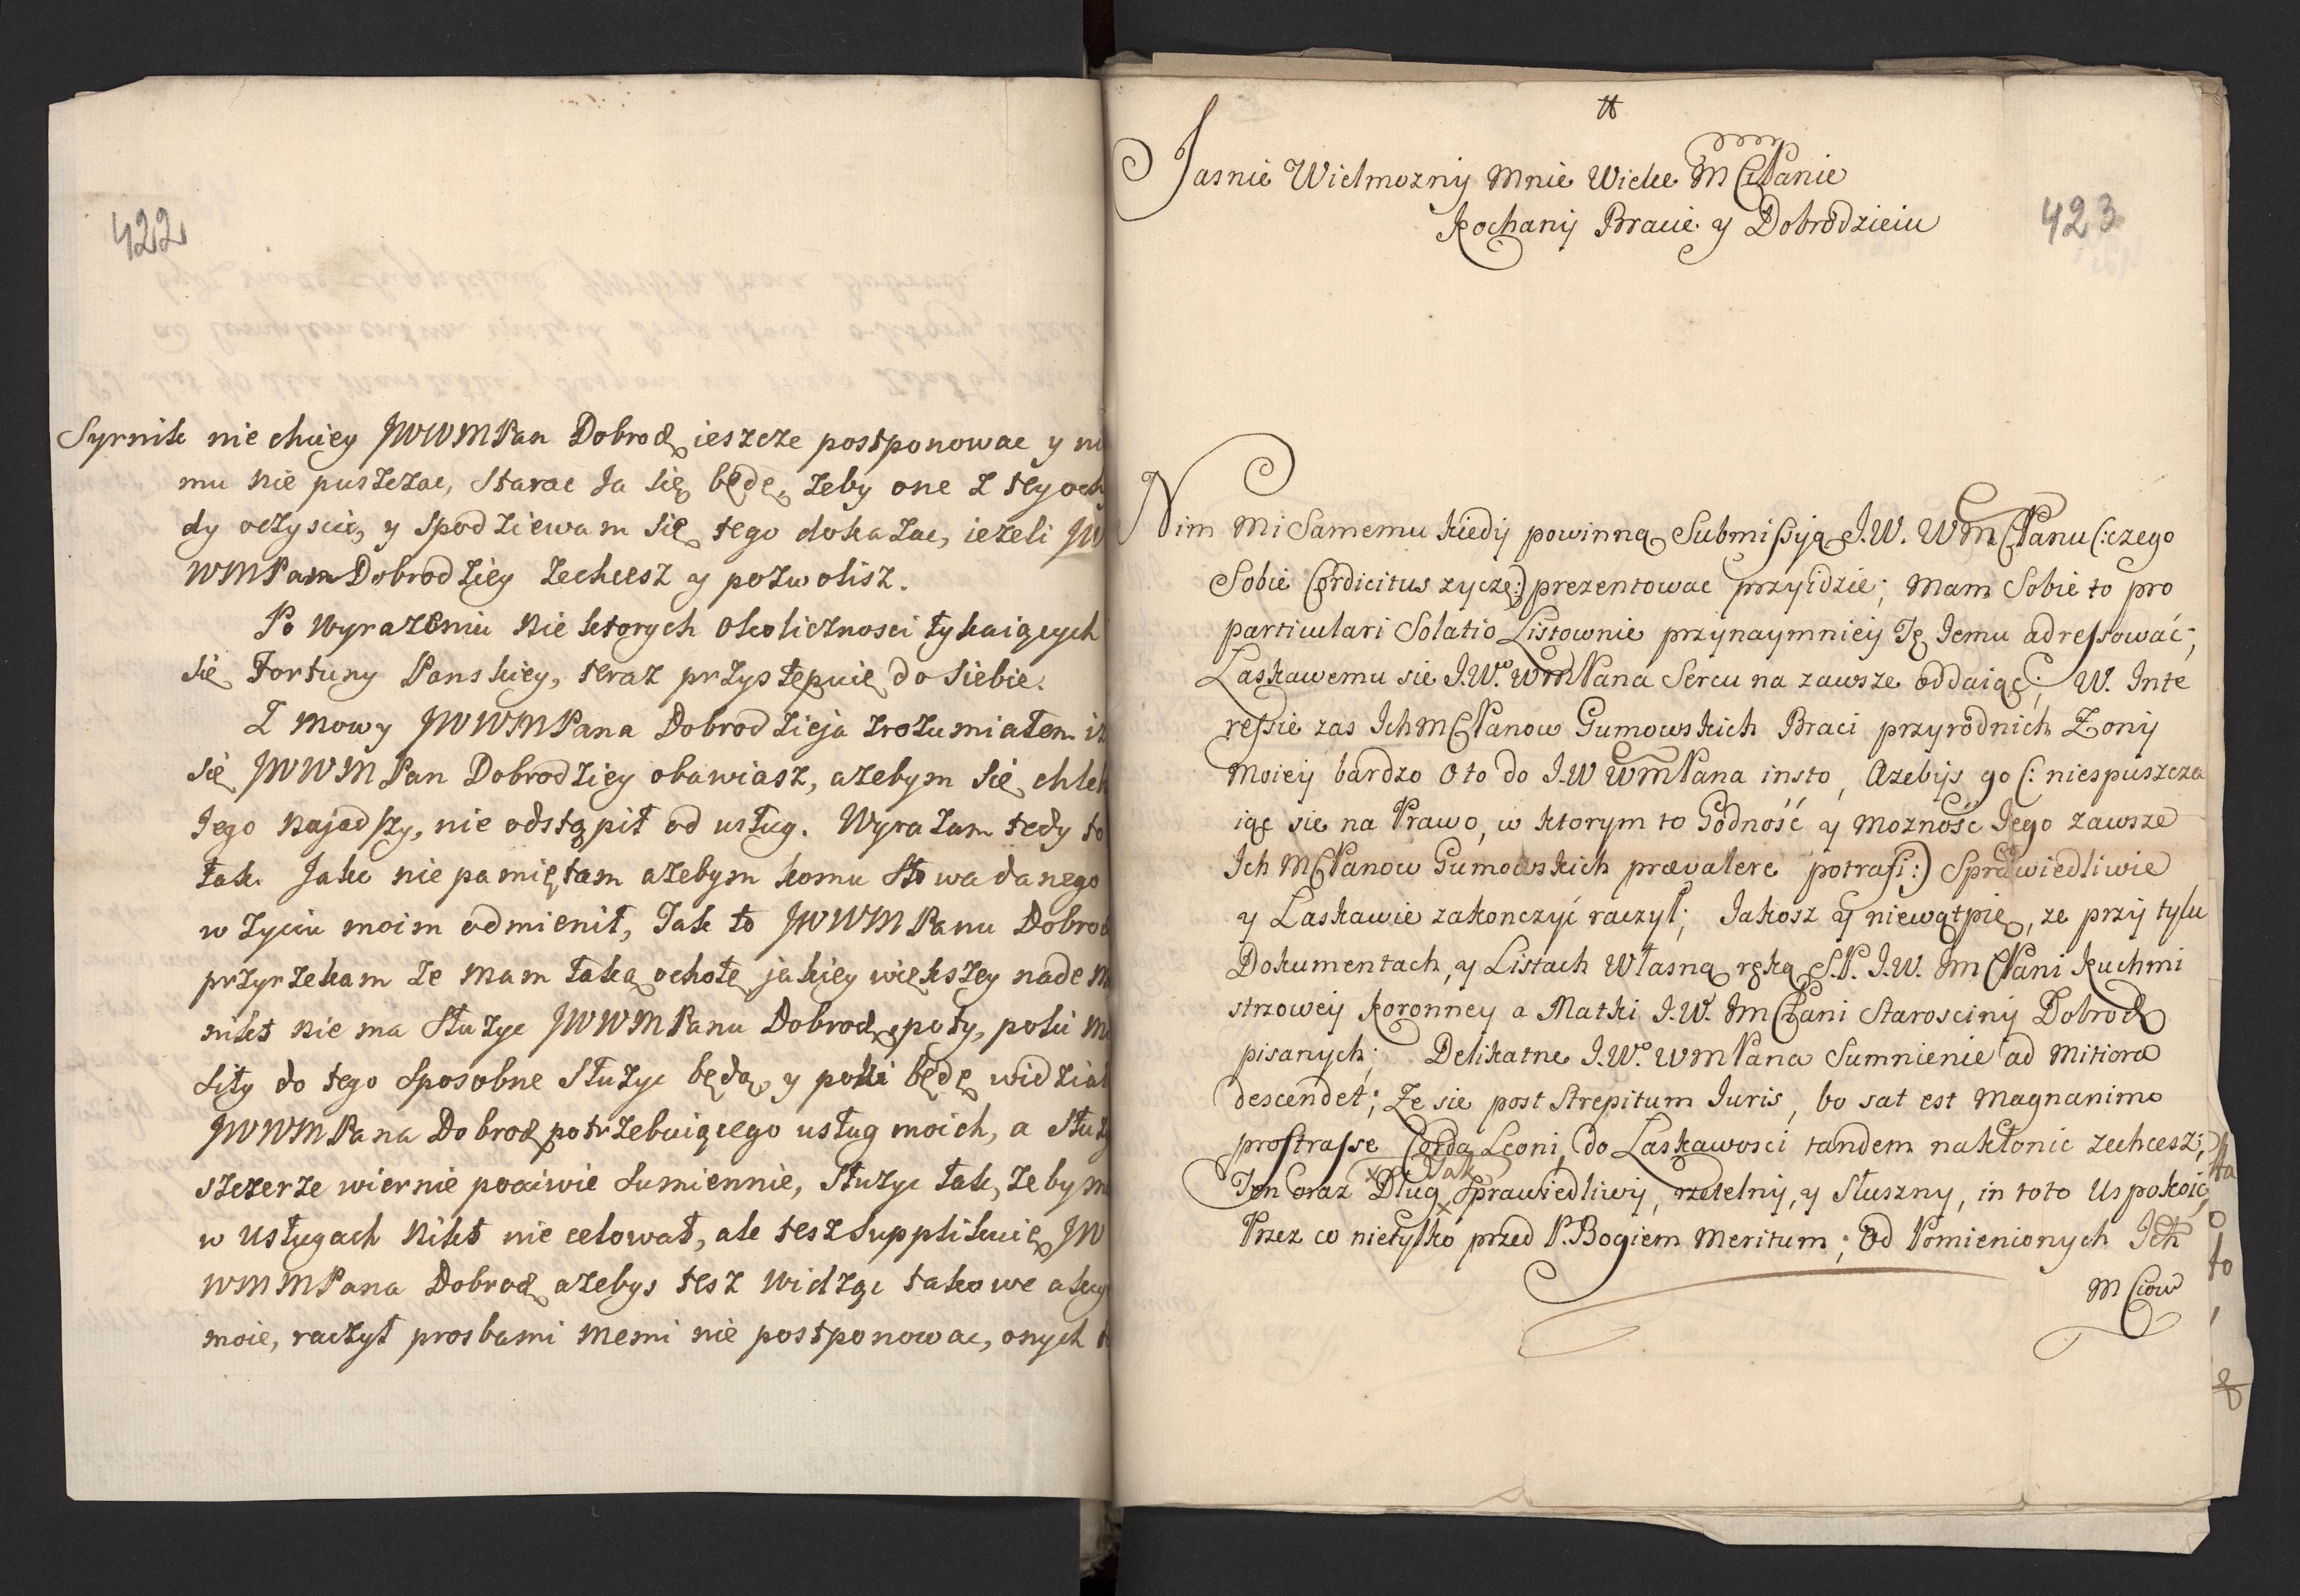 422
Syrnik nie chciey JWWMPan Dobrodz ieszcze postponowac y
mu nie puszczac, starac Ja się będę, zeby one z tey och
dy oczyscic, y spodziewam się tego dokazac, iezeli JW
WMPan Dobrodziey zechcesz y pozwolisz.
Po wyrazeniu nie ktorych okolicznosci tykaiących
się Fortuny Panskiey, teraz przystępuię do siebie.
Z mowy JWWMPana Dobrodzieja zrozumiałem iz
się JWWMPan Dobrodziey obawiasz, azebym się chleb
Jego najadszy, nie odstąpił od usług. Wyrazam tedy to
tak. Jako nie pamiętam azebym komu słowa danego
w zyciu moim odmienił, Tak to JWWMPanu Dobrod
przyrzekam ze mam taką ochotę jakiey większey nade
nikt nie ma słuzyc JWWMPanu Dobrodz poty, poki
siły do tego sposobne słuzyc będą, y poki będę widział
JWWMPana Dobrodz potrzebuiącego usług moich, a słuz
szczerze wiernie pocciwie sumiennie, słuzyc tak, zeby
w usługach nikt nie celował, ale tesz supplikuię JW
WMMPana Dobrodz azebys tesz widząc takowe akcy
moie, raczył prosbami memi nie postponowac, onych
423
Jasnie Wielmozny Mnie Wielce MCiPanie
Kochany Bracie y Dobrodzieiu
Nim mi Samemu kiedy powinną Submissyą J.W. WMCiPanu (:czego
Sobie Cordicitus zyczę:) prezentowac przyidzie; mam Sobie to pro
particulari Solatio Listownie przynaymniey Tę Jemu adressować;
Laskawemu sie J.W. WMPana Sercu na zawsze oddaiąc; W. Inte
ressie zas IchMCPanow Gumowskich Braci przyrodnich Zony
moiey bardzo o to do J.W WMPana insto, Azebys go (: niespuszcza
iąc sie na Prawo, w ktorym to Godność y mozność Jego zawsze
Ich MCPanow Gumowskich prævalere potrafi:) Sprawiedliwie
y Laskawie zakonczyć raczył; Jakosz y niewątpię, ze przy tylu
Dokumentach, y Listach własną ręką S.P. J.W. JmCPani Kuchmi
strzowey Koronney a Matki J.W. JmCPani Starosciny Dobrodz
pisanych; Delikatne J.W. WMPana Sumnienie ad mitiora
descendet; Ze sie post Strepitum Iuris, bo sat est magnanimo
prostrasse Corda Leoni, do Laskawosci tandem nakłonic zechcesz;
Ten oraz Dług x tak x Sprawiedliwy, rzetelny, y Słuszny, in toto Uspokoic,
Przez co nietylko przed P. Bogiem meritum; Od Pomienionych Ich
MCiow
to